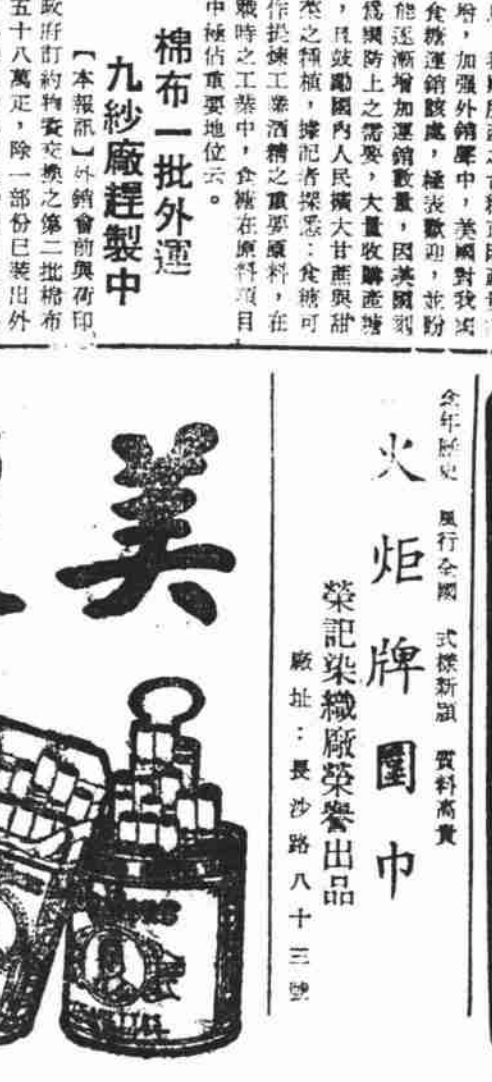 增，加强外銷聲中，美國對我國
食糖運銷該處，極表歡迎，並盼
能逐漸增加運銷數量，因美國刻
爲國防上之需要，大量收購產糖
，且鼓勵國內人民擴大甘蔗與甜
菜之種植，據記者探悉：食糖可
作提煉工業酒精之重要原料，在
戰時之工業中，食糖在原料項目
中極佔重要地位云。
棉布一批外運
九紗廠趕製中
【本報訊】外銷會前與荷印
政府訂約物資交換之第二批棉布
五十八萬疋，除一部份已裝出外
念年歷史 風行全國 式樣新頴 質料高貴
火炬牌圍巾
榮記染織廠榮譽出品
廠址：長沙路八十三號
美